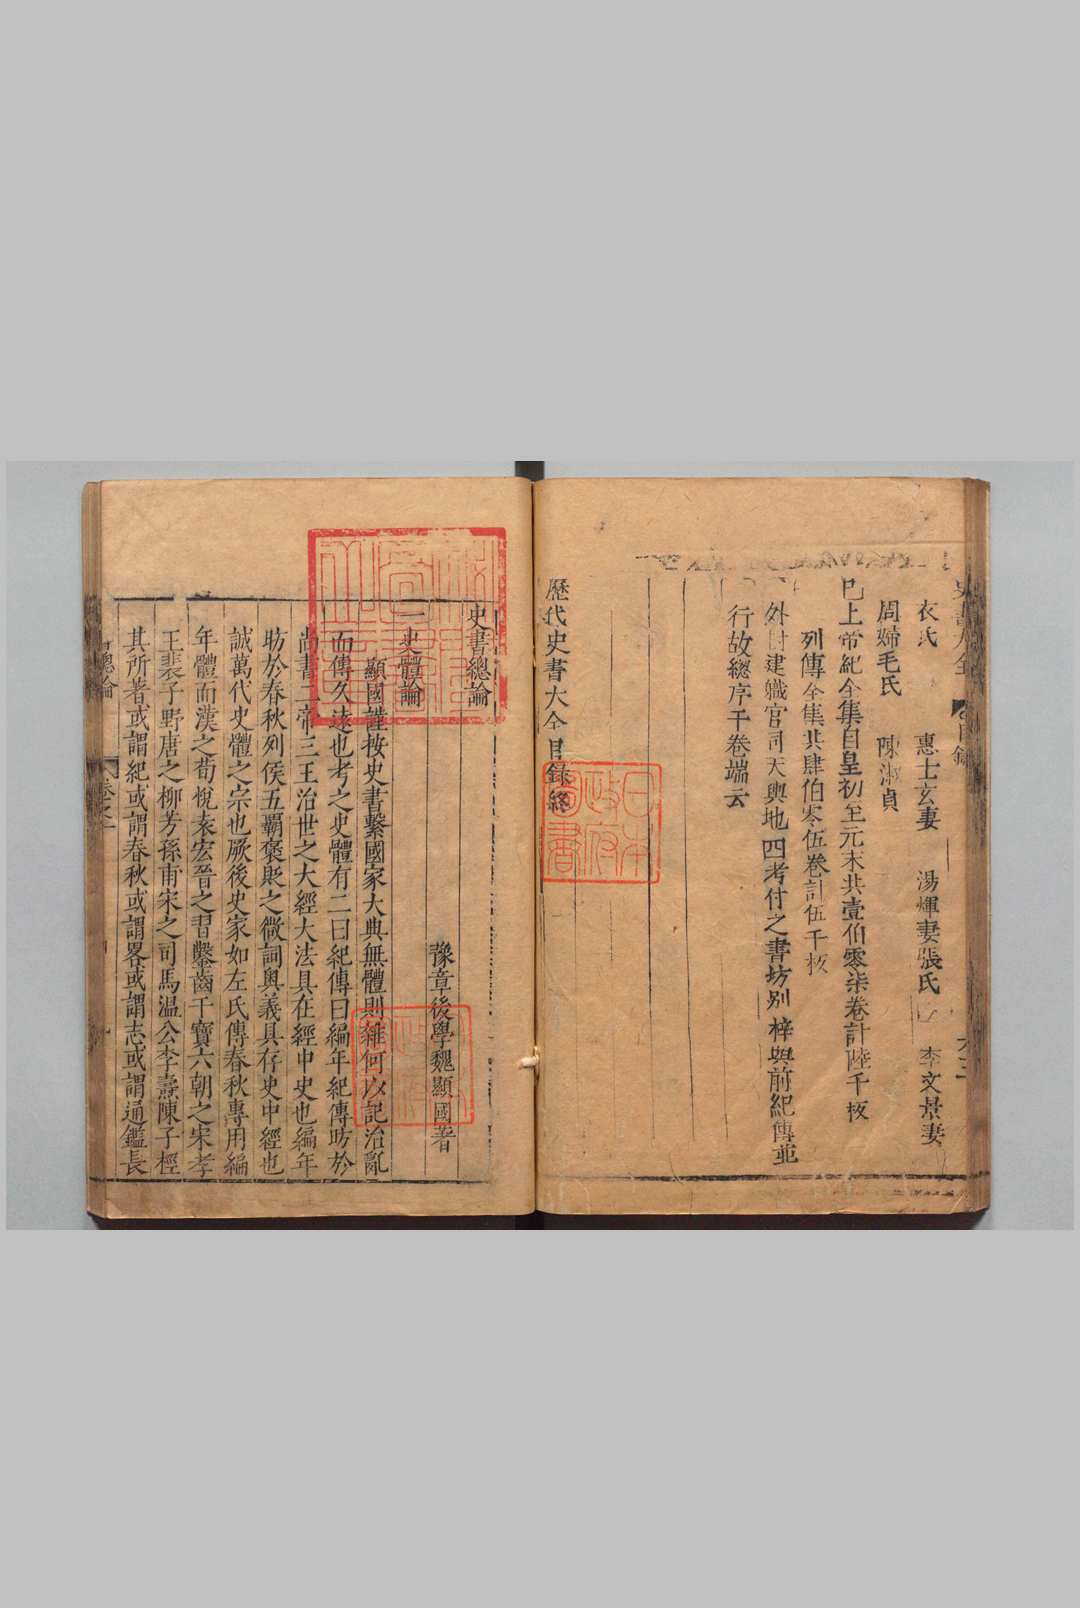 衣氏 惠士玄妻 湯煇妻張氏 李文景妻
周婦毛氏 陳淑貞
已上帝紀全集自皇初至元末共壹伯零柒卷計陸千板
列傳全集共肆伯零伍卷計伍千板
外封建職官司天輿地四考付之書坊別梓與前紀傳並
行故總序于卷端云
歷代史書大全目錄終
日本
政府
圖書
史書總論
豫章後學魏顯國著
一史體論
顯國謹按史書繫國家大典無體則雜何以記治亂
而傳久遠也考之史體有二曰紀傳曰編年紀傳昉於
尚書二帝三王治世之大經大法具在經中史也編年
昉於春秋列侯五霸褒貶之微詞奧義具存史中經也
誠萬代史體之宗也厥後史家如左氏傳春秋專用編
年體而漢之荀悅袁宏晉之習鑿齒干寶六朝之宋孝
王裴子野唐之柳芳孫甫宋之司馬溫公李燾陳子桱
其所著或謂紀或謂春秋或謂畧或謂志或謂通鑑長
總論 卷之一